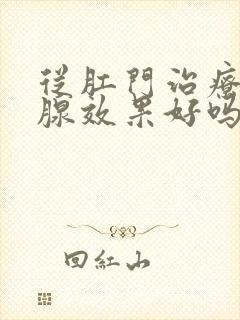 從肛門治療
腺效果好嗎
回紅山